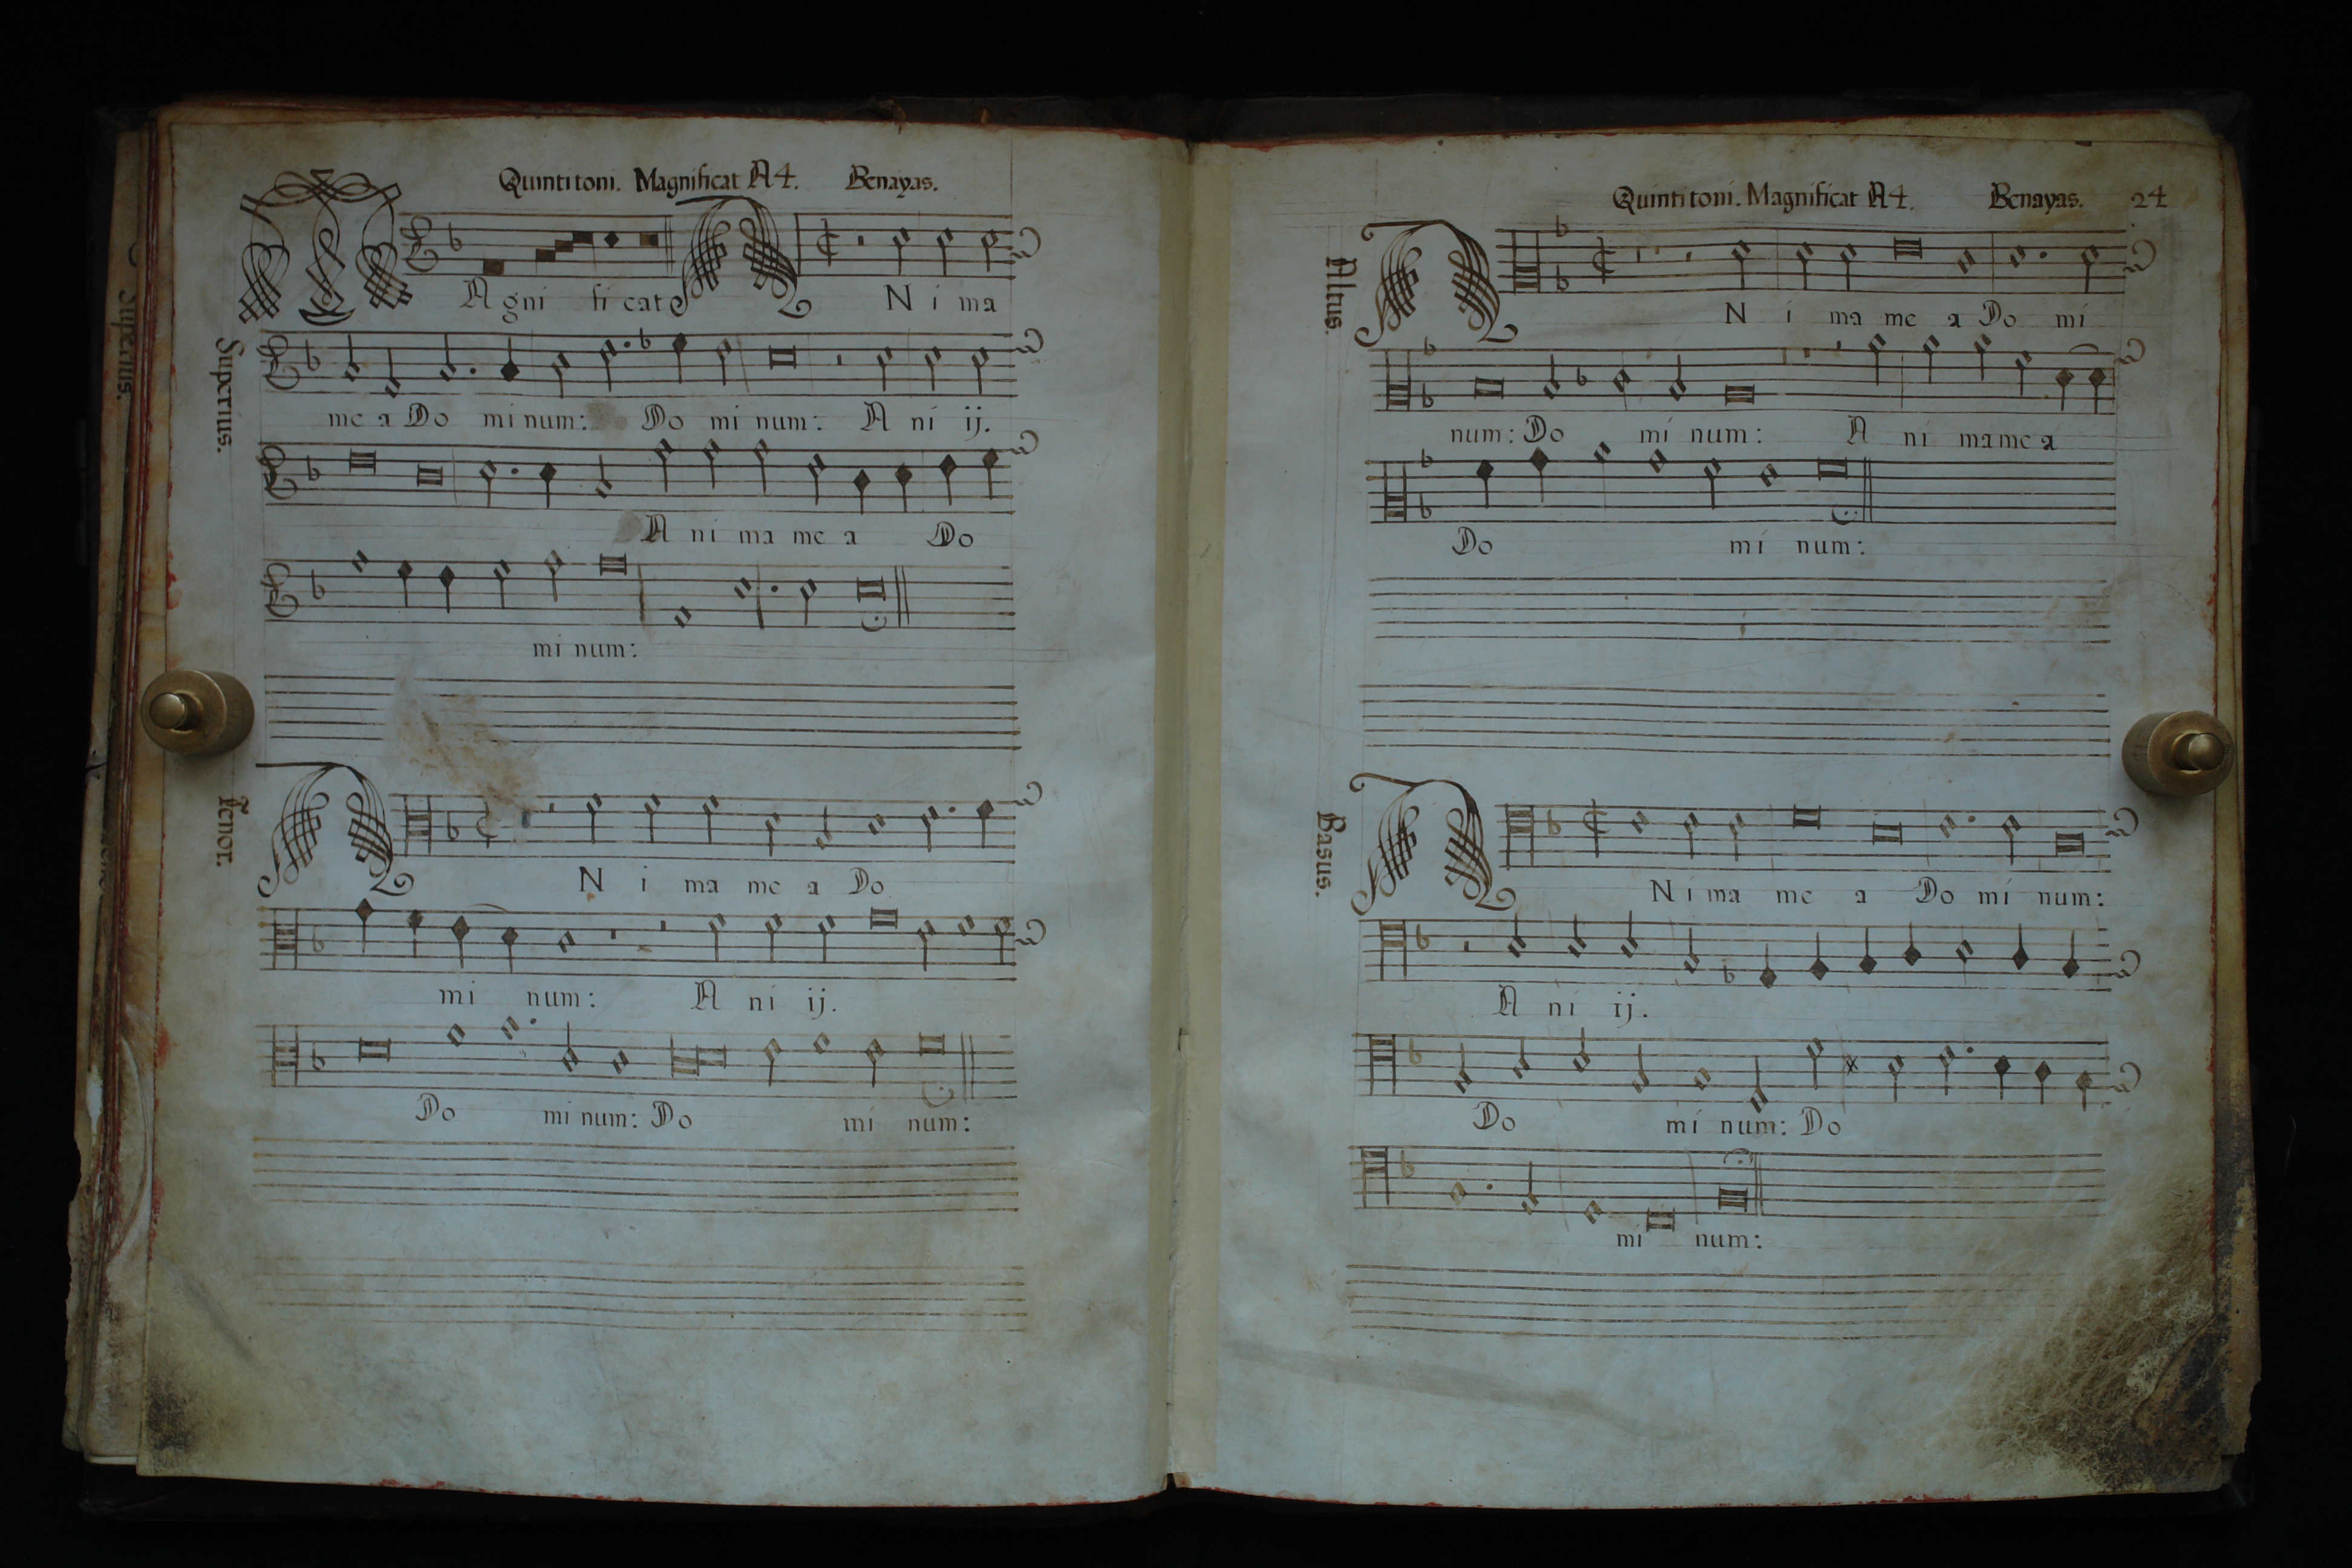 Quinti toni. Magnificat A4. Benayas.
MAgni ficat ANima
Superius.
me a Do mi num: Do mi num: A ni ij.
A ni ma me a Do
mi num:
Tenor.
AN i ma me a Do
mi num: A ni ij.
Do mi num: Do mi num:
Quinti toni. Magnificat A4. Benayas. 24
Altus.
AN i ma me a Do mi
num: Do mi num: A ni ma me a
Do mi num:
Basus.
AN i ma me a Do mi num:
A ni ij.
Do mi num: Do
mi num: